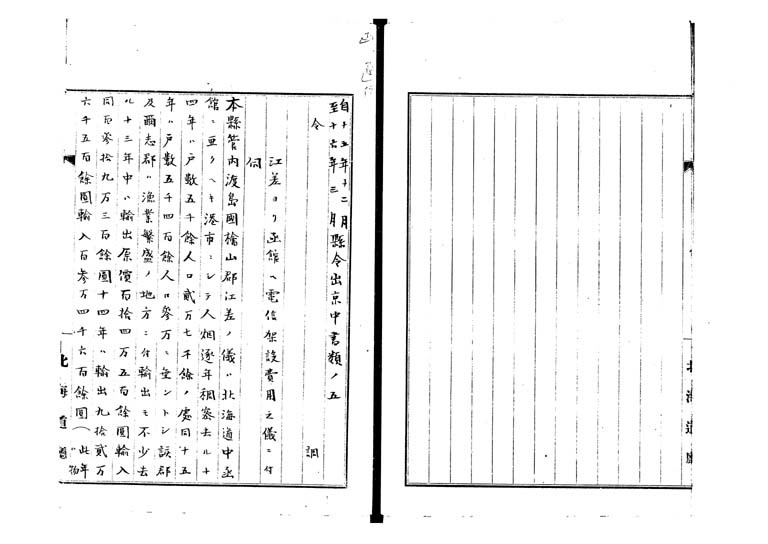 自十五年十二月
至十六年三月縣令出京中書類ノ五
令
調
江差ヨリ函館ヘ電信架設費用之儀ニ付
伺
本縣管内渡島國檜山郡江差ノ儀ハ北海道中函
館ニ亜クヘキ港市ニシテ人烟逐年稠密去ル十
四年ハ戸數五千餘人口貳万七千餘ノ處同十五
年ハ戸數五千四百餘人口參万ニ垂ントシ該郡
及爾志郡ハ漁業繁盛ノ地方ニ付輸出モ不少去
ル十三年中ハ輸出原價百拾四万五百餘圓輸入
同百參拾九万三百餘圓十四年ハ輸出九拾貳万
六千五百餘圓輸入百參万四千六百餘圓(此年ハ物
北海道廳
北海道廳